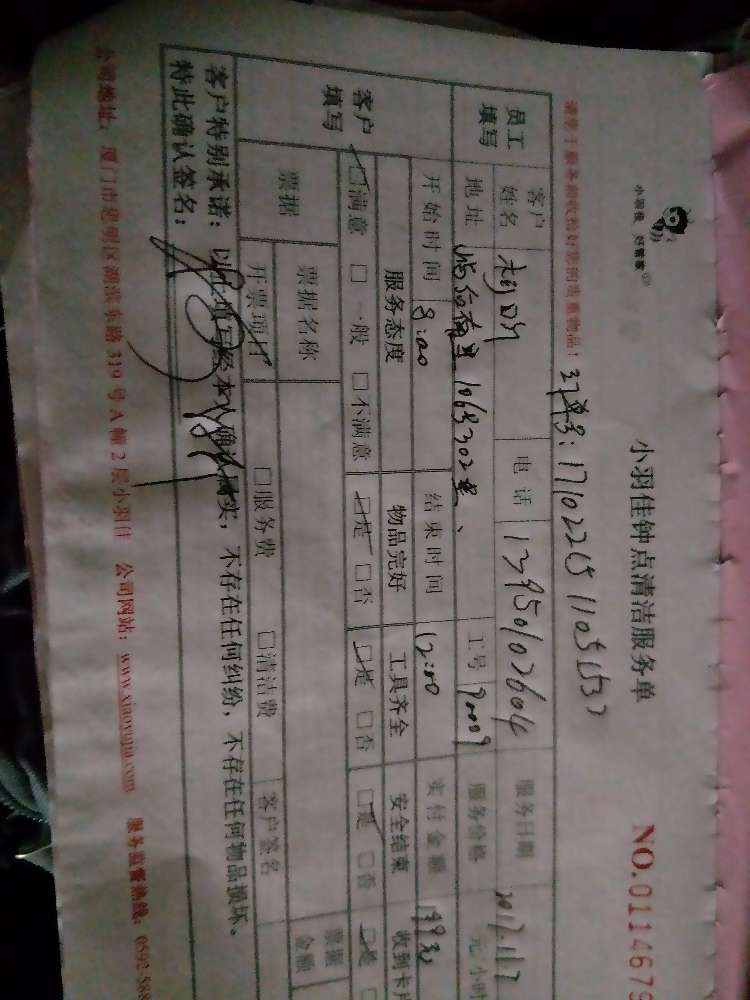 小羽佳 好管家
小羽佳钟点清洁服务单
NO.0114679
请您于服务前收检好您的贵重物品！
员工填写 客户姓名 电话 13950102604 服务日期
地址 10号302室 工号 9009 服务价格 元/小时
客户填写 开始时间 8:00 结束时间 12:00 实付金额
服务态度 物品完好 工具齐全 安全结束 收到卡片
□满意 □一般 □不满意 □是 □否 □是 □否 □是 □否 □是
票据 票据名称 □服务费 □清洁费 客户签名 票据金额
开票项目
客户特别承诺：以上填写经本人确认属实，不存在任何纠纷，不存在任何物品损坏。
特此确认签名：
公司地址：厦门市思明区湖滨东路319号A幢2层小羽佳 公司网站：www.xiaoyujia.com 服务监督热线：0592-588